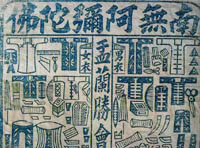 南無阿彌陀佛
盂蘭勝會